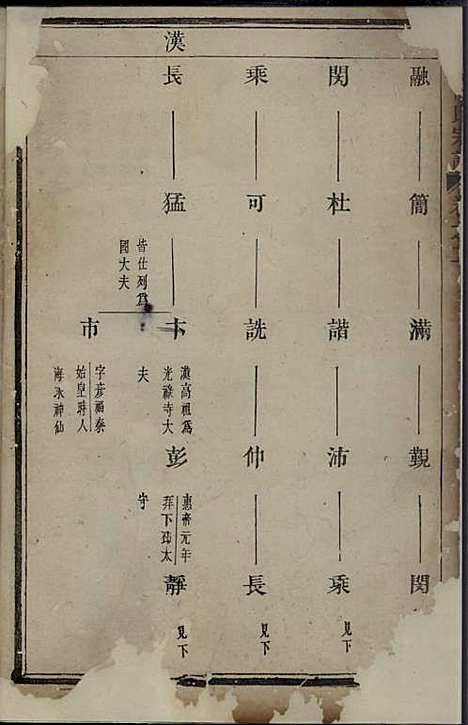 融 簡 滿 覲 閔
閔 杜 諧 沛 乘 見下
乘 可 詵 仲 長 見下
漢
長 猛
皆仕列爲
國大夫
卞
漢高祖爲
光祿寺大
夫
彭
惠帝元年
拜下邳太
守
靜 見下
市
字彥福秦
始皇時人
海永神仙